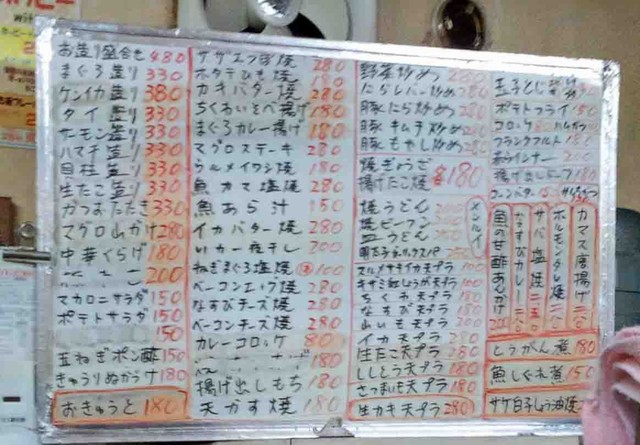 お造り盛合せ 480
まぐろ造り 330
ケンイカ造り 380
タイ造り 330
サーモン造り 330
ハマチ造り 330
貝柱造り 330
生たこ造り 330
かつおたたき 330
マグロ山かけ 280
中華くらげ 180
200
マカロニサラダ 150
ポテトサラダ 150
150
玉ねぎポン酢 150
きゅうりぬかづけ 180
おきゅうと 180
サザエつぼ焼 280
ホタテひも焼 180
カキバター焼 280
ちくわいそべ揚げ 180
まぐろカレー揚げ 180
マグロステーキ 280
ウルメイワシ焼 180
魚カマ塩焼 280
魚あら汁 150
イカバター焼 280
いか一夜干し 200
ねぎまぐろ塩焼 100
ベーコンエッグ焼 280
なすびチーズ焼 280
ベーコンチーズ焼 280
カレーコロッケ 80
180
揚げ出しもち 180
天かす焼 180
野菜炒め 280
にらレバー炒め 280
豚にら炒め 280
豚キムチ炒め 280
豚もやし炒め 280
焼ぎょうざ
揚げたこ焼 各180
メンルイ
焼うどん
焼ビーフン
皿うどん
明太子
スルメサキイカ天プラ 100
キザミ紅しょうが天プラ 100
ちくわ天プラ 180
なすび天プラ 180
山いも天プラ 200
イカ天プラ 280
生たこ天プラ 280
ししとう天プラ 180
さつまいも天プラ 180
生カキ天プラ 280
玉子とじ
ポテトフライ 150
コロッケ 80 ハムカツ
フランクフルト 180
赤ウインナー 200
揚げ出しドーフ 180
コーンバター 150
カマス唐揚げ
ホルモンタレ焼
サバ塩焼 二五〇
なすびカレー
魚の甘酢あんかけ
とうがん煮 180
魚しぐれ煮 150
サケ白子しょう油焼